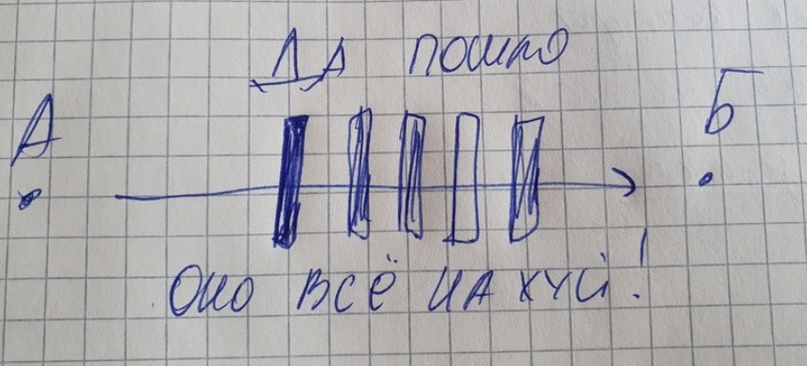 Да пошло
А
Б
Оно всё на хуй!